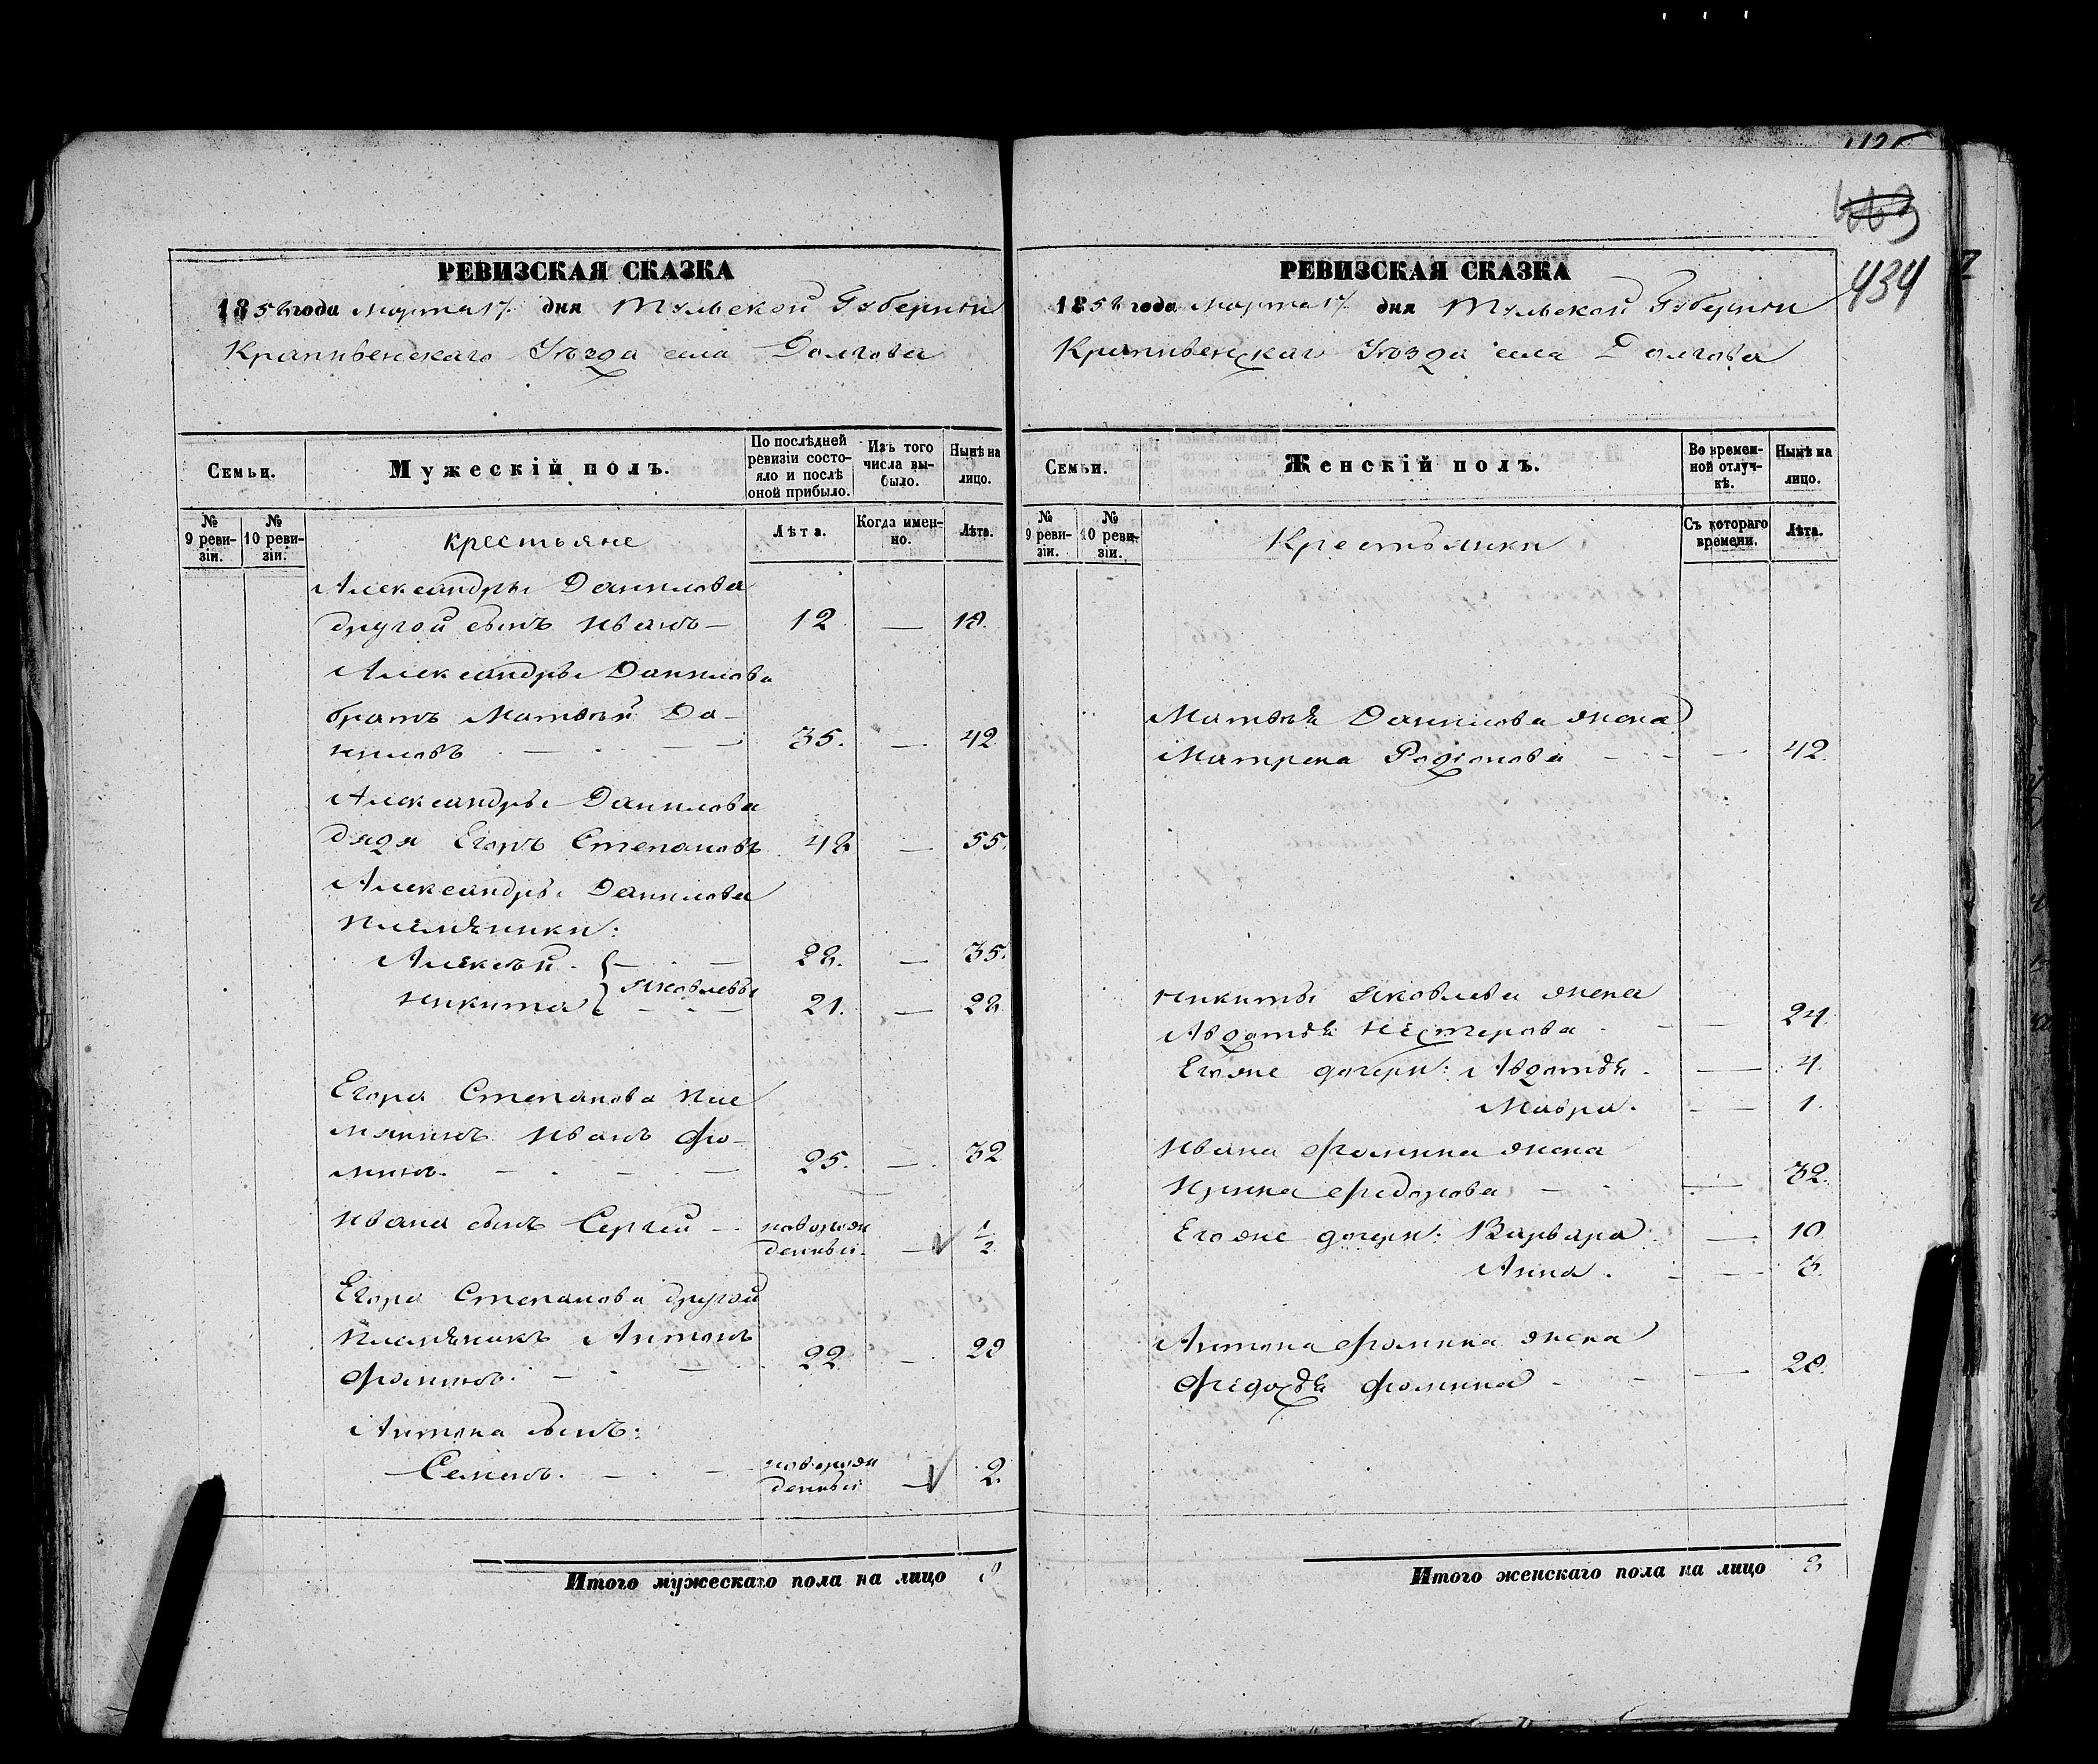 434
РЕВИЗСКАЯ СКАЗКА
1858 года Марта 17 дня Тульской Губернии
Крапивенскаго Уѣзда села Долгова
Семьи.
Мужескій полъ.
По послѣдней ревизіи состояло и послѣ оной прибыло.
Изъ того числа выбыло.
Нынѣ на лицо.
№ 9 ревизіи.
№ 10 ревизіи.
Крестьяне
Лѣта.
Когда именно.
Лѣта.
Александры Данилова
другой сынъ Иванъ — 12 — 19.
Александры Данилова
братъ Матвѣй Да-
ниловъ 35. — 42
Александры Данилова
дядя Егоръ Степановъ 48 — 55.
Александры Данилова
племяники:
Алексѣй 28. — 35.
Яковлевы
Никита 21. — 28
Егора Степанова пле
мяникъ Иванъ Фо-
минъ. 25. — 32
Ивана сынъ Сергей — новорож
денный — 1/2
Егора Степанова другой
племяникъ Антонъ 22 — 29
Фоминъ.
Антона сынъ:
Семенъ. новорож
денный — 2.
Итого мужескаго пола на лицо
РЕВИЗСКАЯ СКАЗКА
1858 года Марта 17 дня Тульской Губернии
Крапивенскаго Уѣзда села Долгова
Семьи.
Женскій полъ.
Во временной отлучкѣ.
Нынѣ на лицо.
№ 9 ревизіи.
№ 10 ревизіи.
Крестьянки
Съ котораго времени.
Лѣта.
Матвѣя Данилова жена
Матрена Родіонова — 42.
Никиты Яковлева жена
Авдотья Нестерова — 24.
Егоже дочери: Авдотья. — 4.
Мавра. — 1.
Ивана Фомина жена
Ирина Федорова — 32.
Егоже дочери: Варвара — 10
Анна. — 3.
Антона Фомина жена
Федосья Фомина — 28.
Итого женскаго пола на лицо 8